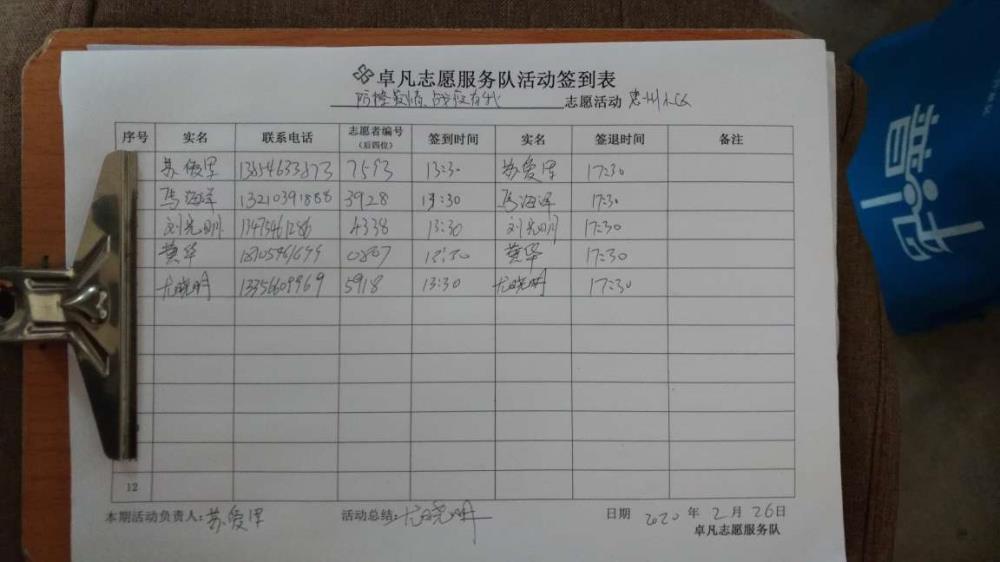 卓凡志愿服务队活动签到表
防控疫情、战疫有我 志愿活动
序号 实名 联系电话 志愿者编号(后四位) 签到时间 实名 签退时间 备注
苏俊里 13854633873 7593 13:30 苏爱里 17:30
马海洋 13210391888 3928 13:30 马海洋 17:30
刘克明 4338 13:30 刘克明 17:30
黄华 黄华 17:30
尤晓明 13356609969 5918 13:30 尤晓明 17:30
12
本期活动负责人: 苏爱里 活动总结: 尤晓明 日期 2020 年 2 月 26 日
卓凡志愿服务队